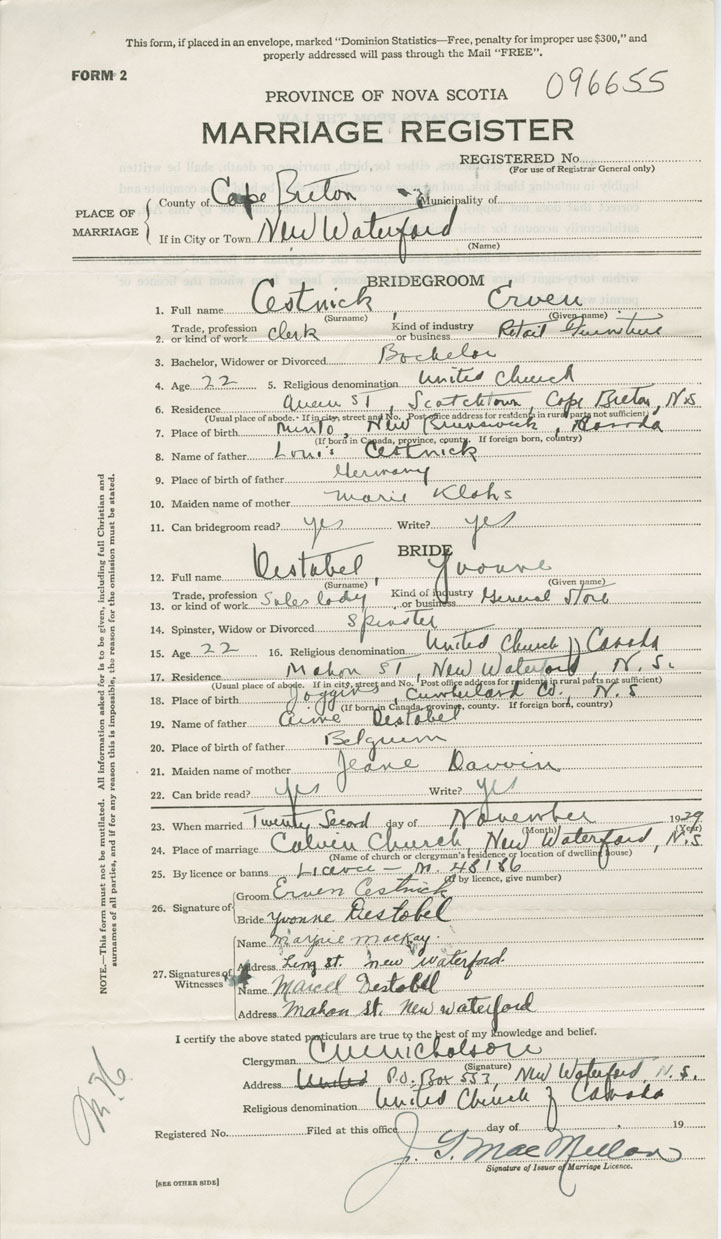 This form, if placed in an envelope, marked "Dominion Statistics—Free, penalty for improper use $300," and
properly addressed will pass through the Mail "FREE".
FORM 2
096655
PROVINCE OF NOVA SCOTIA
MARRIAGE REGISTER
REGISTERED No.
(For use of Registrar General only)
PLACE OF MARRIAGE
County of Cape Breton Municipality of
If in City or Town New Waterford
(Name)
BRIDEGROOM
1. Full name Cestnick, Erven
(Surname) (Given name)
2. Trade, profession or kind of work clerk Kind of industry or business Retail Furniture
3. Bachelor, Widower or Divorced Bachelor
4. Age 22 5. Religious denomination United Church
6. Residence Queen St, Scotchtown, Cape Breton, N.S
(Usual place of abode. If in city, street and No. Post office address for residents in rural parts not sufficient)
7. Place of birth Minto, New Brunswick, Canada
(If born in Canada, province, county. If foreign born, country)
8. Name of father Louis Cestnick
9. Place of birth of father Germany
10. Maiden name of mother Marie Klohs
11. Can bridegroom read? yes Write? yes
BRIDE
12. Full name Destobel, Yvonne
(Surname) (Given name)
13. Trade, profession or kind of work Sales lady Kind of industry or business General Store
14. Spinster, Widow or Divorced Spinster
15. Age 22 16. Religious denomination United Church of Canada
17. Residence Mahon St, New Waterford, N.S.
(Usual place of abode. If in city, street and No. Post office address for residents in rural parts not sufficient)
18. Place of birth Joggins, Cumberland Co. N.S
(If born in Canada, province, county. If foreign born, country)
19. Name of father Aime Destobel
20. Place of birth of father Belgium
21. Maiden name of mother Jeane
22. Can bride read? yes Write? yes
23. When married Twenty Second day of November 1929
(Month) (Year)
24. Place of marriage Calvin Church, New Waterford, N.S
(Name of church or clergyman's residence or location of dwelling house)
25. By licence or banns Licence - M. 48186
(If by licence, give number)
26. Signature of
Groom Erven Cestnick
Bride Yvonne Destobel
27. Signatures of Witnesses
Name Marjorie MacKay.
Address King St. New Waterford.
Name Marcel Destobel
Address Mahon St. New Waterford
I certify the above stated particulars are true to the best of my knowledge and belief.
Clergyman C M Nicholson
(Signature)
Address United P.O. Box 553, New Waterford, N.S.
Religious denomination United Church of Canada
Registered No. Filed at this office day of 19
J. G. MacMullan
Signature of Issuer of Marriage Licence.
[SEE OTHER SIDE]
NOTE.—This form must not be mutilated. All information asked for is to be given, including full Christian and
surnames of all parties, and if for any reason this is impossible, the reason for the omission must be stated.